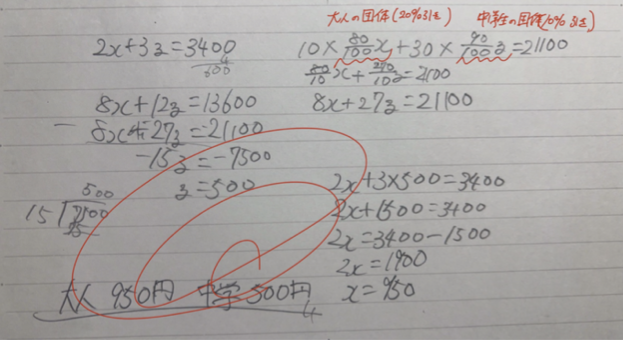 大人の団体(20%引き) 中学生の団体(10%引き)
2x+3z=3400
10×80/100x+30×90/100z=21100
80/10x+270/10z=21100
8x+27z=21100
8x+12z=13600
8x+27z=21100
-15z=-7500
z=500
500
15 7500
75
2x+3×500=3400
2x+1500=3400
2x=3400-1500
2x=1900
x=950
大人 950円 中学 500円